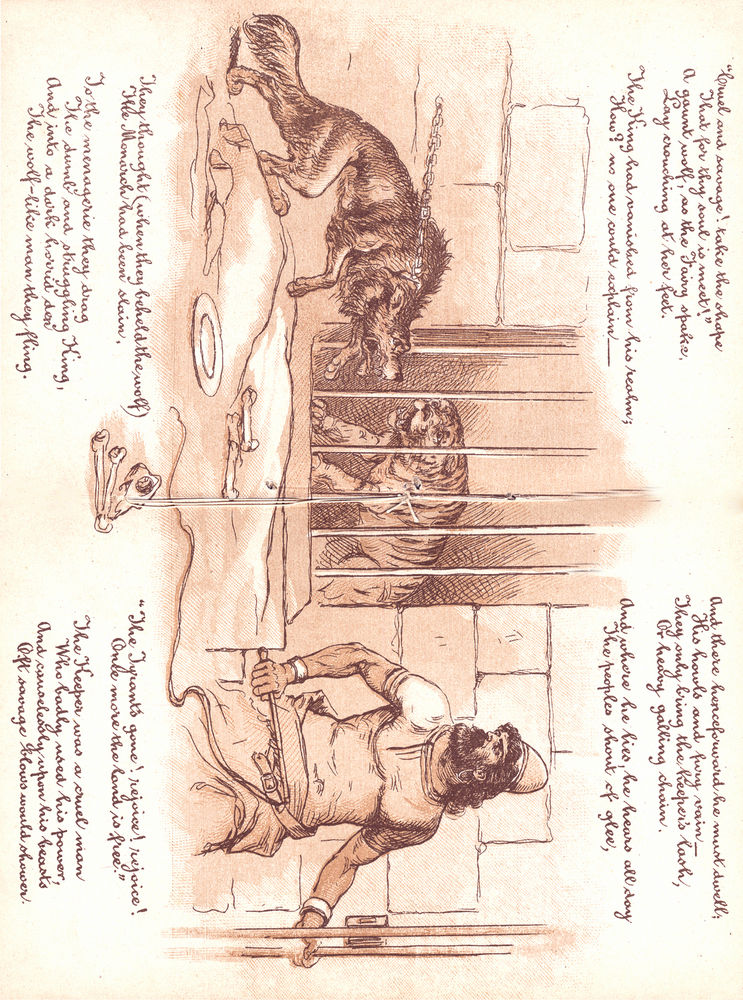 "Cruel and savage! take the shape
That for thy soul is meet!"
A gaunt wolf, as the Fairy spake,
Lay crouching at her feet.
The King had vanished from his realm;
How? no one could explain—
They thought (when they beheld the wolf)
The Monarch had been slain.
To the menagerie they drag
The dumb and struggling King,
And into a dark horrid den
The wolf-like man they fling.
And there henceforward he must dwell;
His howls and fury vain—
They only bring the Keeper's lash,
Or heavy galling chain.
And where he lies, he hears all day
The peoples shout of glee,
"The Tyrant's gone! rejoice! rejoice!
Once more the land is free,"
The Keeper was a cruel man
Who badly used his power,
And causelessly upon his beasts
Oft savage blows would shower.